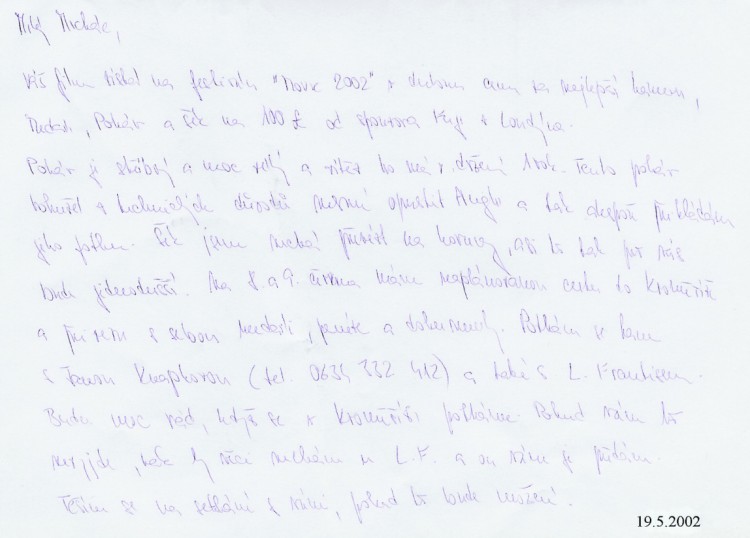 Milý Michale,
Váš film získal na festivalu "Novk 2002" v dubnu cenu za nejlepší kameru,
Medaili, Pohár a šek na 100 £ od sponzora Fuji v Londýně.
Pohár je stříbrný a moc velký a vítěz ho má v držení 1 rok. Tento pohár
bohužel z technických důvodů nesmí opustit Anglii a tak alespoň přikládám
jeho fotku. Šek jsme nechal převést na koruny, asi to tak pro vás
bude jednodušší. Na 8. a 9. června mám naplánovanou cestu do Kroměříže
a přivezu s sebou medaili, peníze a dokumenty. Potkám se tam
s Janou Knapkovou (tel. 0634 332 412) a také s L. Františem.
Budu moc rád, když se v Kroměříži potkáme. Pokud vám to
nevyjde, vaše věci nechám u L.F. a on vám je předá.
Těším se na setkání s vámi, pokud to bude možné.
19.5.2002